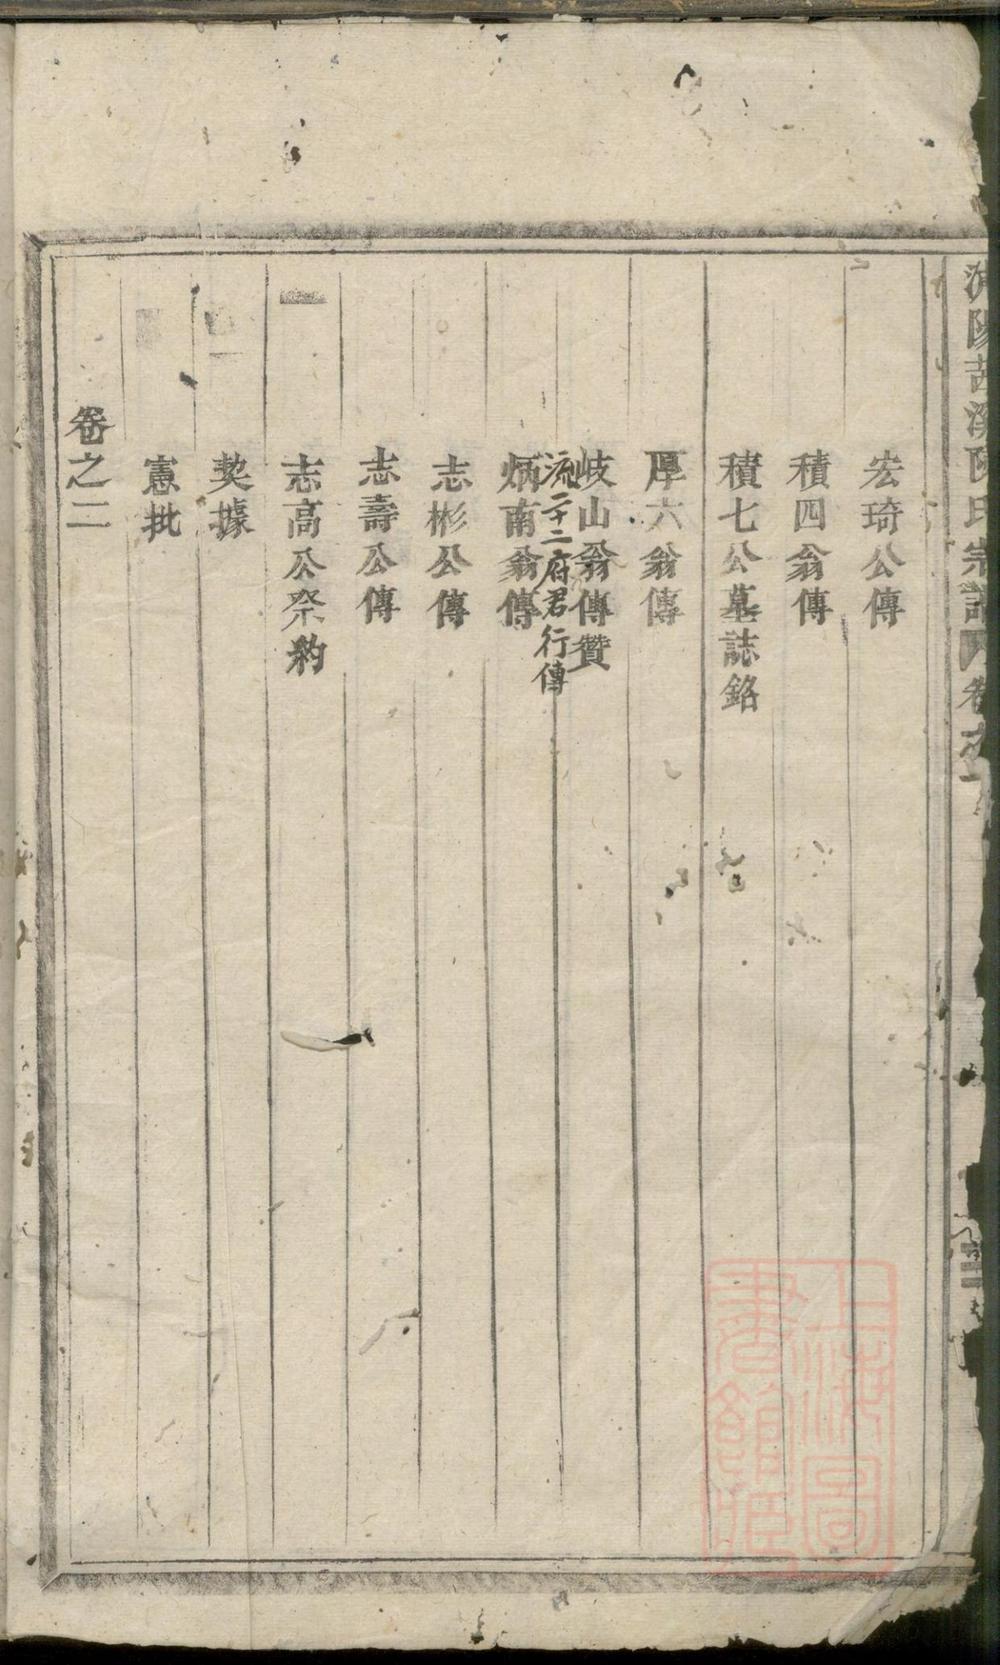 宏琦公傳
積四翁傳
積七公墓誌銘
厚六翁傳
岐山翁傳贊
流二十二府君行傳
炳南翁傳
志彬公傳
志壽公傳
志高公祭豹
契據
憲批
卷之二
陽 溪陳氏宗譜 卷之一
上海圖書館藏